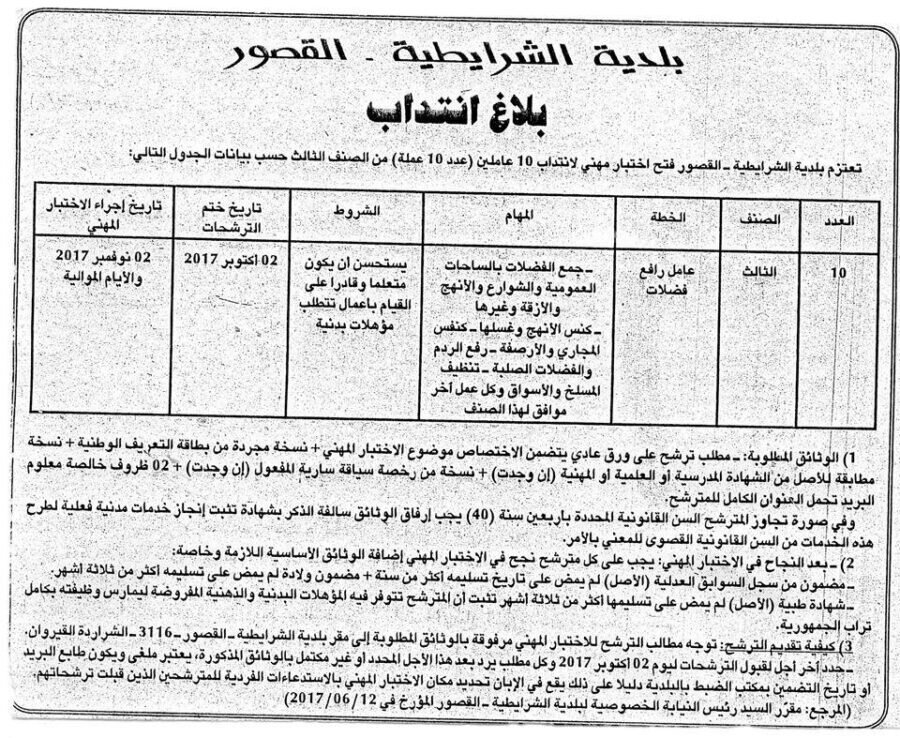 بلدية الشرايطية ـ القصور
بلاغ انتداب
تعتزم بلدية الشرايطية ـ القصور فتح اختبار مهني لانتداب 10 عاملين (عدد 10 عملة) من الصنف الثالث حسب بيانات الجدول التالي:
العدد
الصنف
الخطة
المهام
الشروط
تاريخ ختم
الترشحات
تاريخ إجراء الاختبار
المهني
10
الثالث
عامل رافع
فضلات
ـ جمع الفضلات بالساحات
العمومية والشوارع والأنهج
والأزقة وغيرها
ـ كنس الأنهج وغسلها ـ كنفس
المجاري والأرصفة ـ رفع الردم
والفضلات الصلبة ـ تنظيف
المسلخ والأسواق وكل عمل آخر
موافق لهذا الصنف
يستحسن أن يكون
متعلما وقادرا على
القيام بأعمال تتطلب
مؤهلات بدنية
02 أكتوبر 2017
02 نوفمبر 2017
والأيام الموالية
1) الوثائق المطلوبة: ـ مطلب ترشح على ورق عادي يتضمن الاختصاص موضوع الاختبار المهني + نسخة مجردة من بطاقة التعريف الوطنية + نسخة
مطابقة للأصل من الشهادة المدرسية أو العلمية أو المهنية (إن وجدت) + نسخة من رخصة سياقة سارية المفعول (إن وجدت) + 02 ظروف خالصة معلوم
البريد تحمل العنوان الكامل للمترشح.
وفي صورة تجاوز المترشح السن القانونية المحددة بأربعين سنة (40) يجب إرفاق الوثائق سالفة الذكر بشهادة تثبت إنجاز خدمات مدنية فعلية لطرح
هذه الخدمات من السن القانونية القصوى للمعني بالأمر.
2) ـ بعد النجاح في الاختبار المهني: يجب على كل مترشح نجح في الاختبار المهني إضافة الوثائق الأساسية اللازمة وخاصة:
ـ مضمون من سجل السوابق العدلية (الأصل) لم يمض على تاريخ تسليمه أكثر من سنة + مضمون ولادة لم يمض على تسليمه أكثر من ثلاثة أشهر.
ـ شهادة طبية (الأصل) لم يمض على تسليمها أكثر من ثلاثة أشهر تثبت أن المترشح تتوفر فيه المؤهلات البدنية والذهنية المفروضة ليمارس وظيفته بكامل
تراب الجمهورية.
3) كيفية تقديم الترشح: توجه مطالب الترشح للاختبار المهني مرفوقة بالوثائق المطلوبة إلى مقر بلدية الشرايطية ـ القصور ـ 3116 ـ الشراردة القيروان.
ـ حدد آخر أجل لقبول الترشحات ليوم 02 أكتوبر 2017 وكل مطلب يرد بعد هذا الأجل المحدد أو غير مكتمل بالوثائق المذكورة، يعتبر ملغى ويكون طابع البريد
أو تاريخ التضمين بمكتب الضبط بالبلدية دليلا على ذلك يقع في الإبان تحديد مكان الاختبار المهني بالاستدعاءات الفردية للمترشحين الذين قبلت ترشحاتهم.
(المرجع: مقرر السيد رئيس النيابة الخصوصية لبلدية الشرايطية ـ القصور المؤرخ في 2017/06/12)